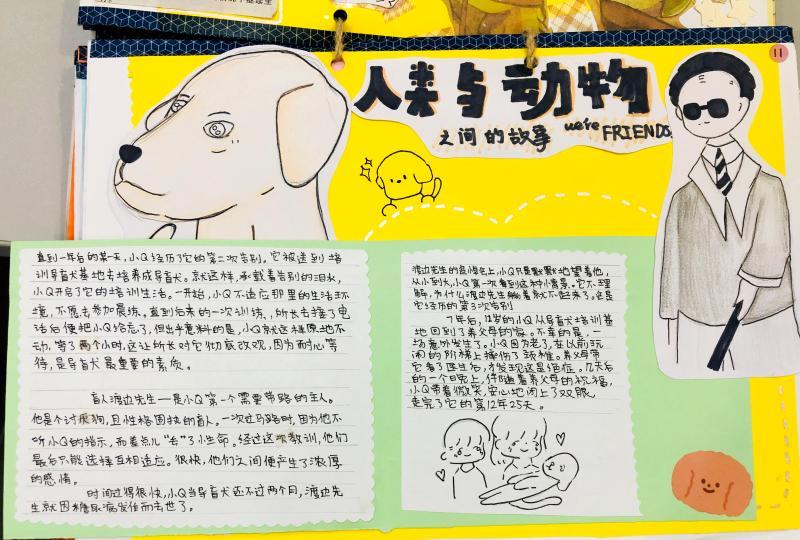 人类与动物
之间的故事 we're FRIENDS
11
直到一年后的某一天,小Q经历了它的第二次告别。它被送到培
训导盲犬基地去培养成导盲犬。就这样,承载着告别的泪水,
小Q开启了它的培训生活。一开始,小Q不适应那里的生活环
境,不愿去参加晨练。直到后来的一次训练,所长去接了电
话后便把小Q给忘了,但出乎意料的是,小Q就这样原地不
动,等了两个小时,这让所长对它彻底改观,因为耐心等
待,是导盲犬最重要的素质。
盲人渡边先生一是小Q第一个需要带路的主人。
他是个讨厌狗,且性格固执的盲人。一次过马路时,因为他不
听小Q的指示,而差点儿“丢”了小生命。经过这次教训,他们
最后只能选择互相适应。很快,他们之间便产生了浓厚
的感情。
时间过得很快,小Q当导盲犬还不过两个月,渡边先
生就因糖尿病发作而去世了。
渡边先生的追悼会上,小Q只是默默地望着他,
从小到大,小Q第一次看到这种情景。它不理
解,为什么渡边先生躺着就不起来了,这是
它经历的第3次告别
7年后,12岁的小Q从导盲犬培训基
地回到了养父母的家。不幸的是,一
场意外发生了。小Q因为老了,在以前玩
闹的阶梯上摔伤了颈椎。养父母带
它看了医生后,才发现这是绝症。几天后
的一个晚上,伴随着养父母的祝福,
小Q带着微笑,安心地闭上了双眼
走完了它的第12年25天。